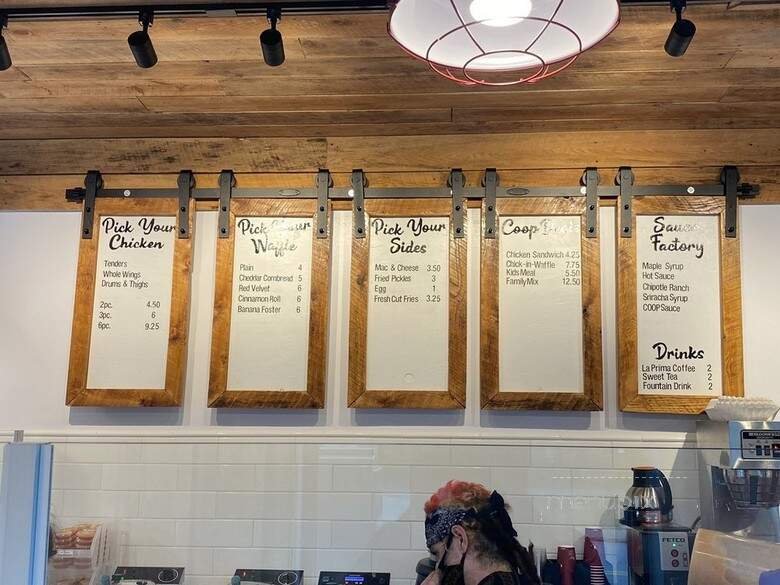 Pick Your
Chicken
Tenders
Whole Wings
Drums & Thighs
2pc. 4.50
3pc. 6
6pc. 9.25
Pick Your
Waffle
Plain 4
Cheddar Cornbread 5
Red Velvet 6
Cinnamon Roll 6
Banana Foster 6
Pick Your
Sides
Mac & Cheese 3.50
Fried Pickles 3
Egg 1
Fresh Cut Fries 3.25
Coop
Chicken Sandwich 4.25
Chick-in-Waffle 7.75
Kids Meal 5.50
Family Mix 12.50
Sauce
Factory
Maple Syrup
Hot Sauce
Chipotle Ranch
Sriracha Syrup
COOP Sauce
Drinks
La Prima Coffee 2
Sweet Tea 2
Fountain Drink 2
FETCO